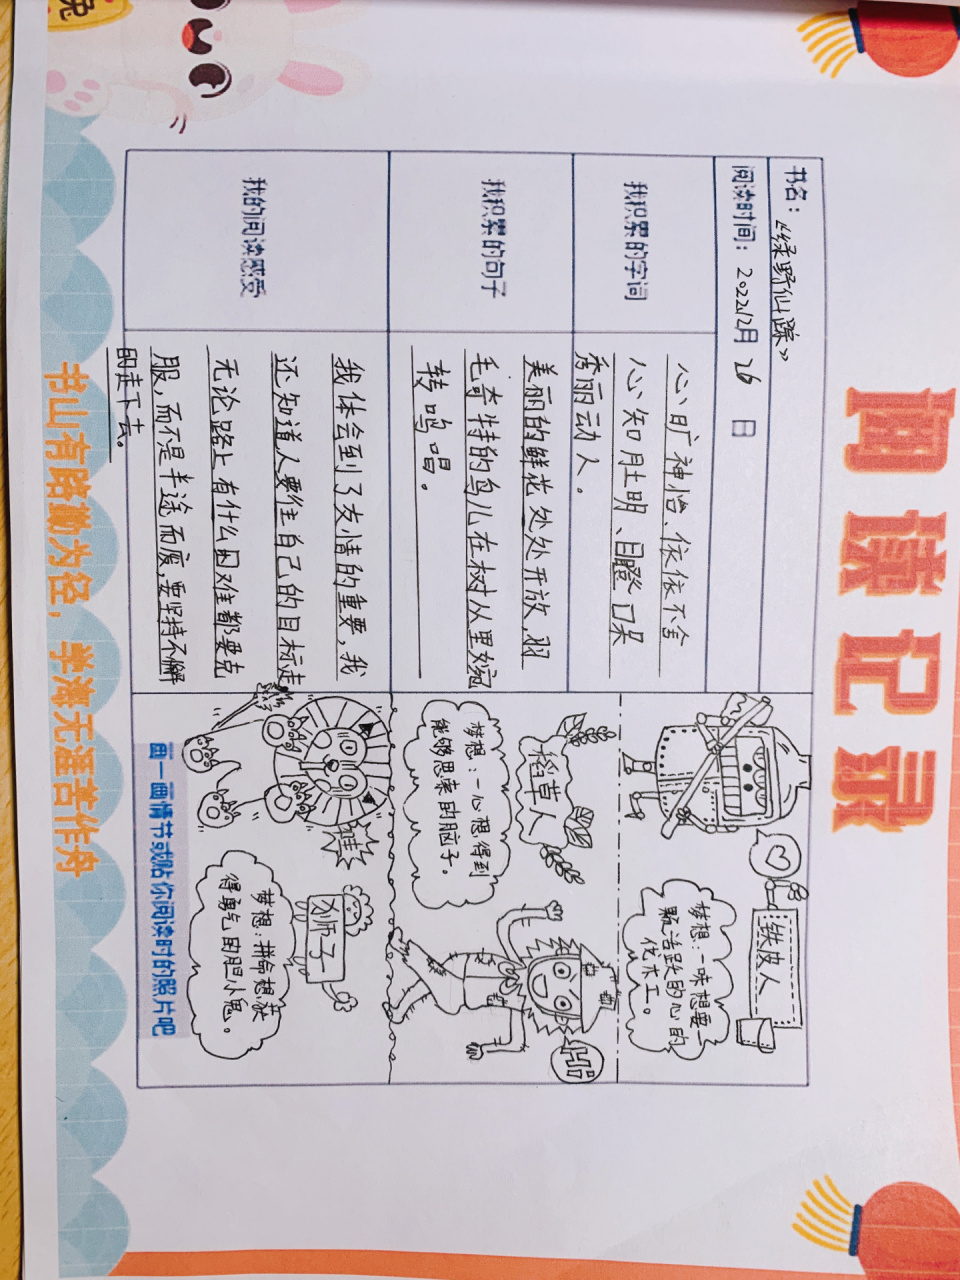 阅读记录
书名：《绿野仙踪》
阅读时间：2022 12月 26 日
我积累的字词
心旷神怡、依依不舍
心知肚明、目瞪口呆
秀丽动人。
我积累的句子
美丽的鲜花处处开放，羽
毛奇特的鸟儿在树从里婉
转鸣唱。
我的阅读感受
我体会到了友情的重要，我
还知道人要往自己的目标走
无论路上有什么困难都要克
服，而不是半途而废，要坚持不懈
的走下去。
铁皮人
梦想：一味想要一
颗活跃的心的
伐木工。
稻草人
梦想：一心想得到
能够思索的脑子。
Hi
哇
狮子
梦想：拼命想获
得勇气的胆小鬼。
画一画情节或贴你阅读时的照片吧
书山有路勤为径，学海无涯苦作舟
兔